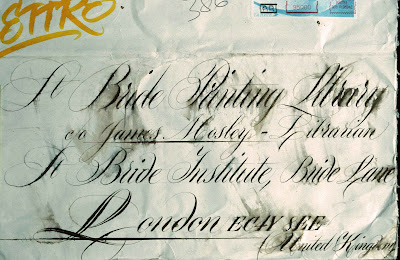 ETTRO
St Bride Printing Library
c/o James Mosley - Librarian
St Bride Institute, Bride Lane
London EC4Y 8EE
(United Kingdom)